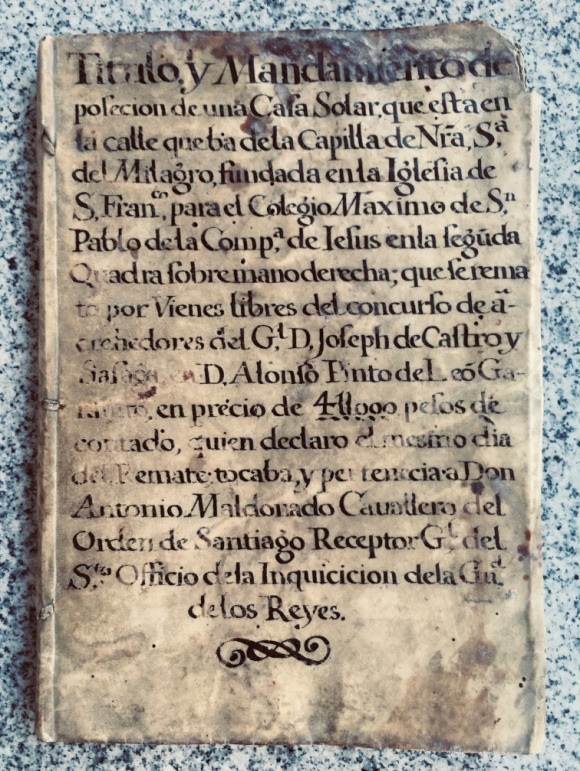 Titulo, y Mandamiento de
poſecion de una Caſa Solar, que eſta en
la calle que ba de la Capilla de Nr̃a, S.ª
del Milagro, fundada en la Igleſia de
S. Fran.ᶜᵒ, para el Colegio Maximo de S.ⁿ
Pablo de la Comp.ª de Ieſus en la ſegũda
Quadra ſobre mano derecha; que ſe rema
to por Vienes libres del concurſo de a-
crehedores del G.ˡ D, Joſeph de Caſtro y
D. Alonſo Pinto de Leõ Ga-
en precio de 4U000 peſos de
contado, quien declaro el mesmo dia
del Remate tocaba, y pertenecia a Don
Antonio Maldonado Cavallero del
Orden de Santiago Receptor G.ˡ del
S.ᵗᵒ Officio de la Inquicicion de la
de los Reyes.